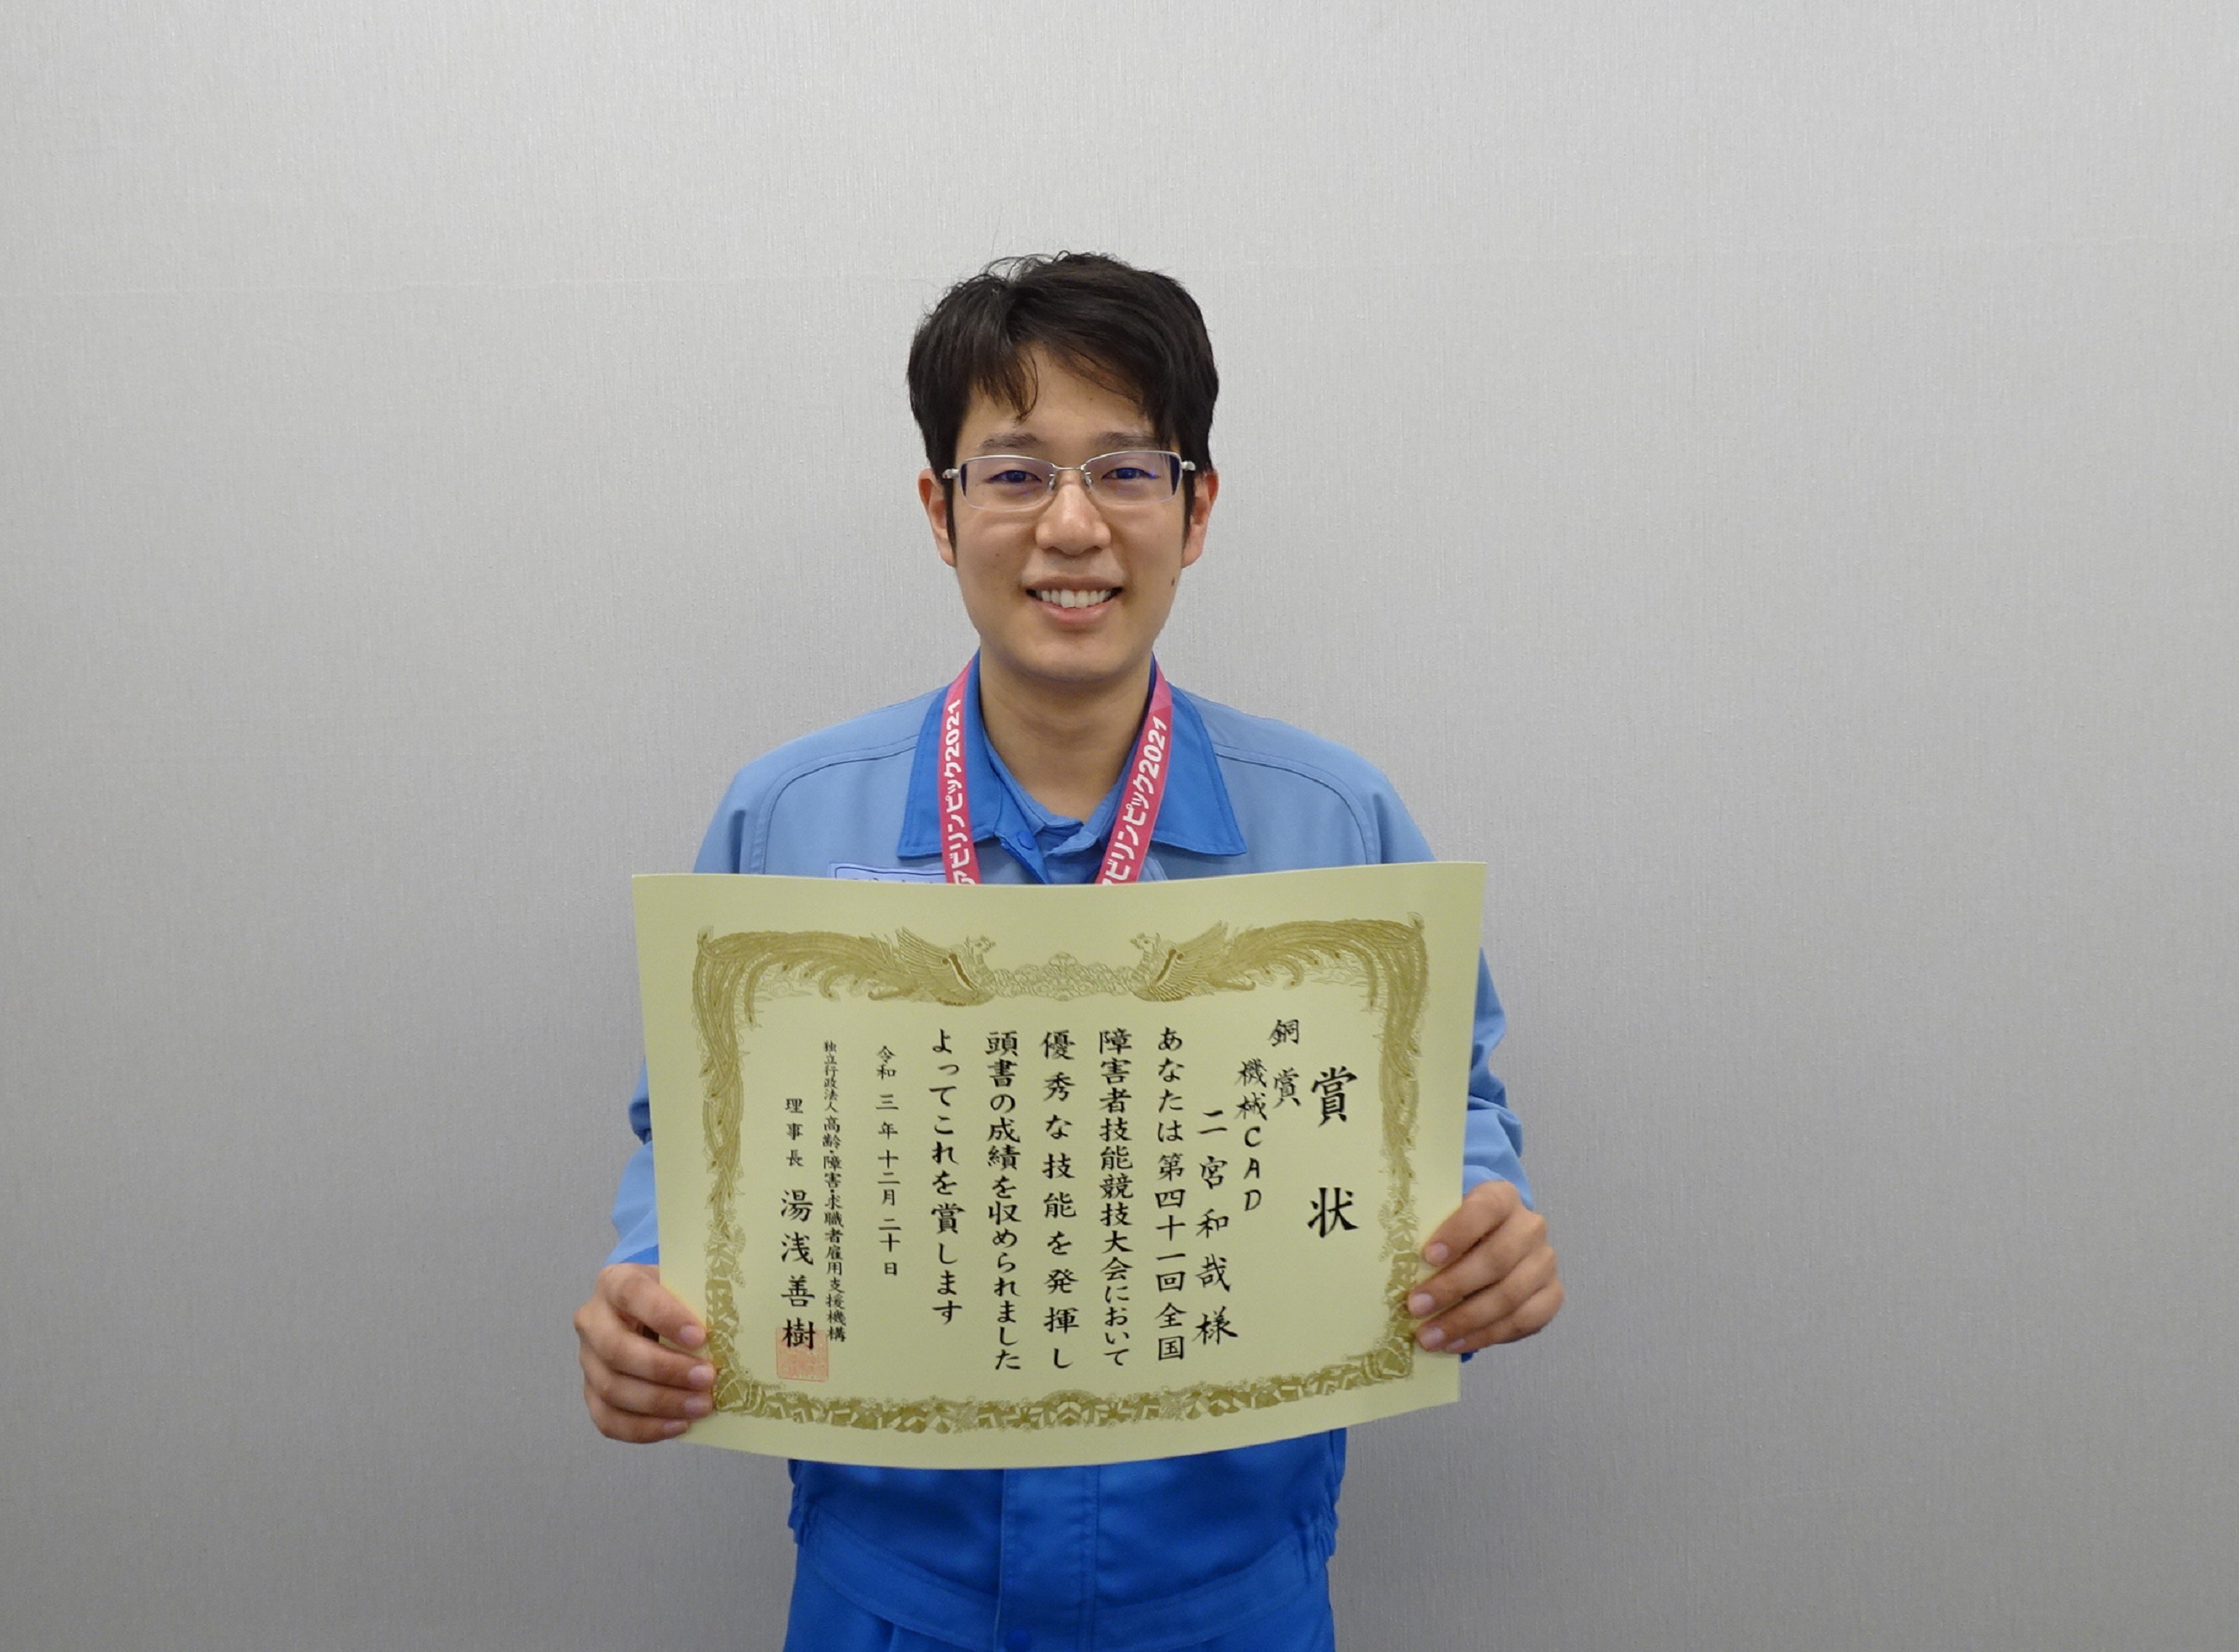 アビリンピック2021
アビリンピック2021
賞状
銅賞
機械CAD
二宮和哉様
あなたは第四十一回全国
障害者技能競技大会において
優秀な技能を発揮し
頭書の成績を収められました
よってこれを賞します
令和三年十二月二十日
独立行政法人高齢・障害・求職者雇用支援機構
理事長 湯浅善樹